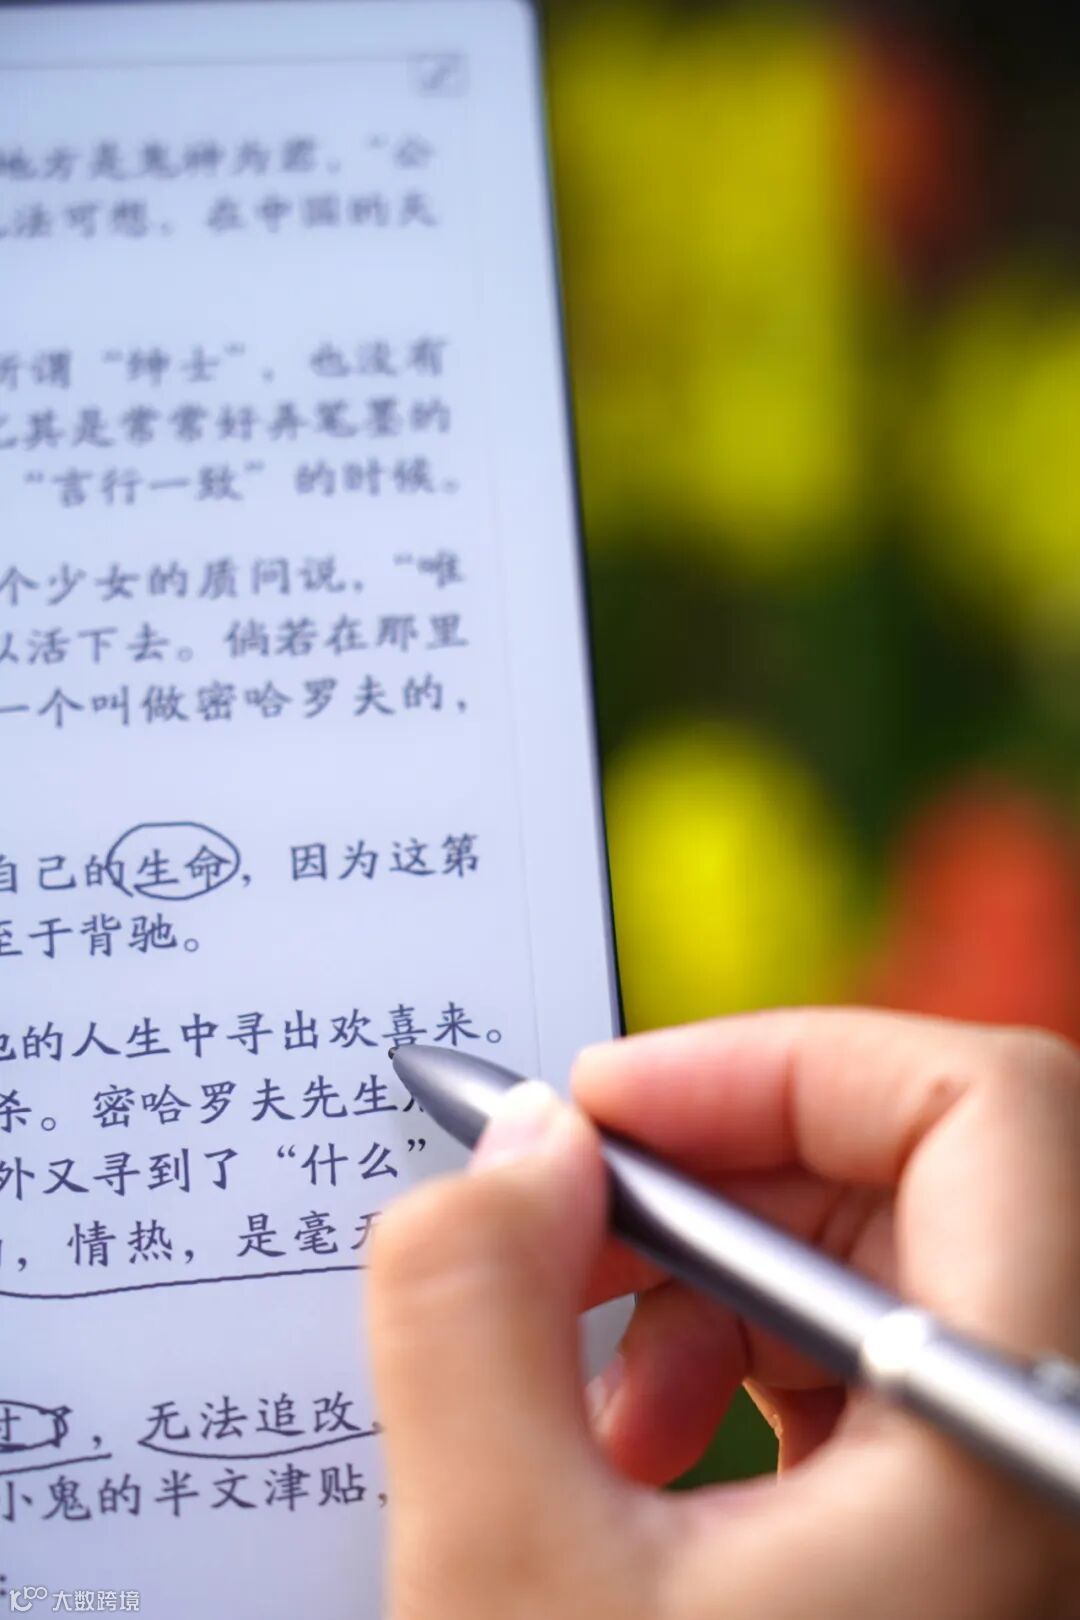 地方是鬼神为君,“公
法可想。在中国的天
所谓“绅士”,也没有
其是常常好弄笔墨的
“言行一致”的时候。
个少女的质问说,“唯
以活下去。倘若在那里
一个叫做密哈罗夫的,
自己的生命,因为这第
至于背驰。
他的人生中寻出欢喜来。
杀。密哈罗夫先生
外又寻到了“什么”
,情热,是毫无
过了,无法追改,
小鬼的半文津贴,
:
大数跨境